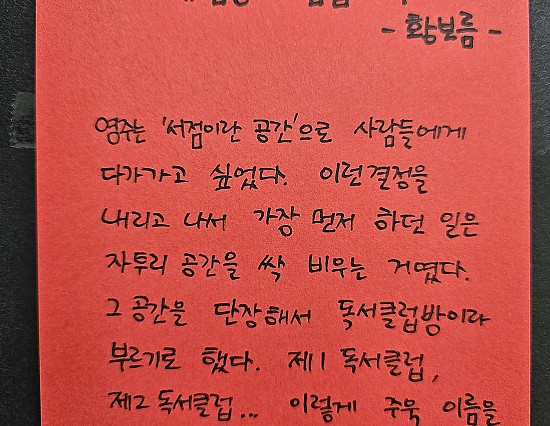 - 황보름 -
영주는 '서점이란 공간'으로 사람들에게
다가가고 싶었다. 이런 결정을
내리고 나서 가장 먼저 하던 일은
자투리 공간을 싹 비우는 거였다.
그 공간을 단장해서 독서클럽방이라
부르기로 했다. 제1 독서클럽,
제2 독서클럽... 이렇게 주욱 이름을